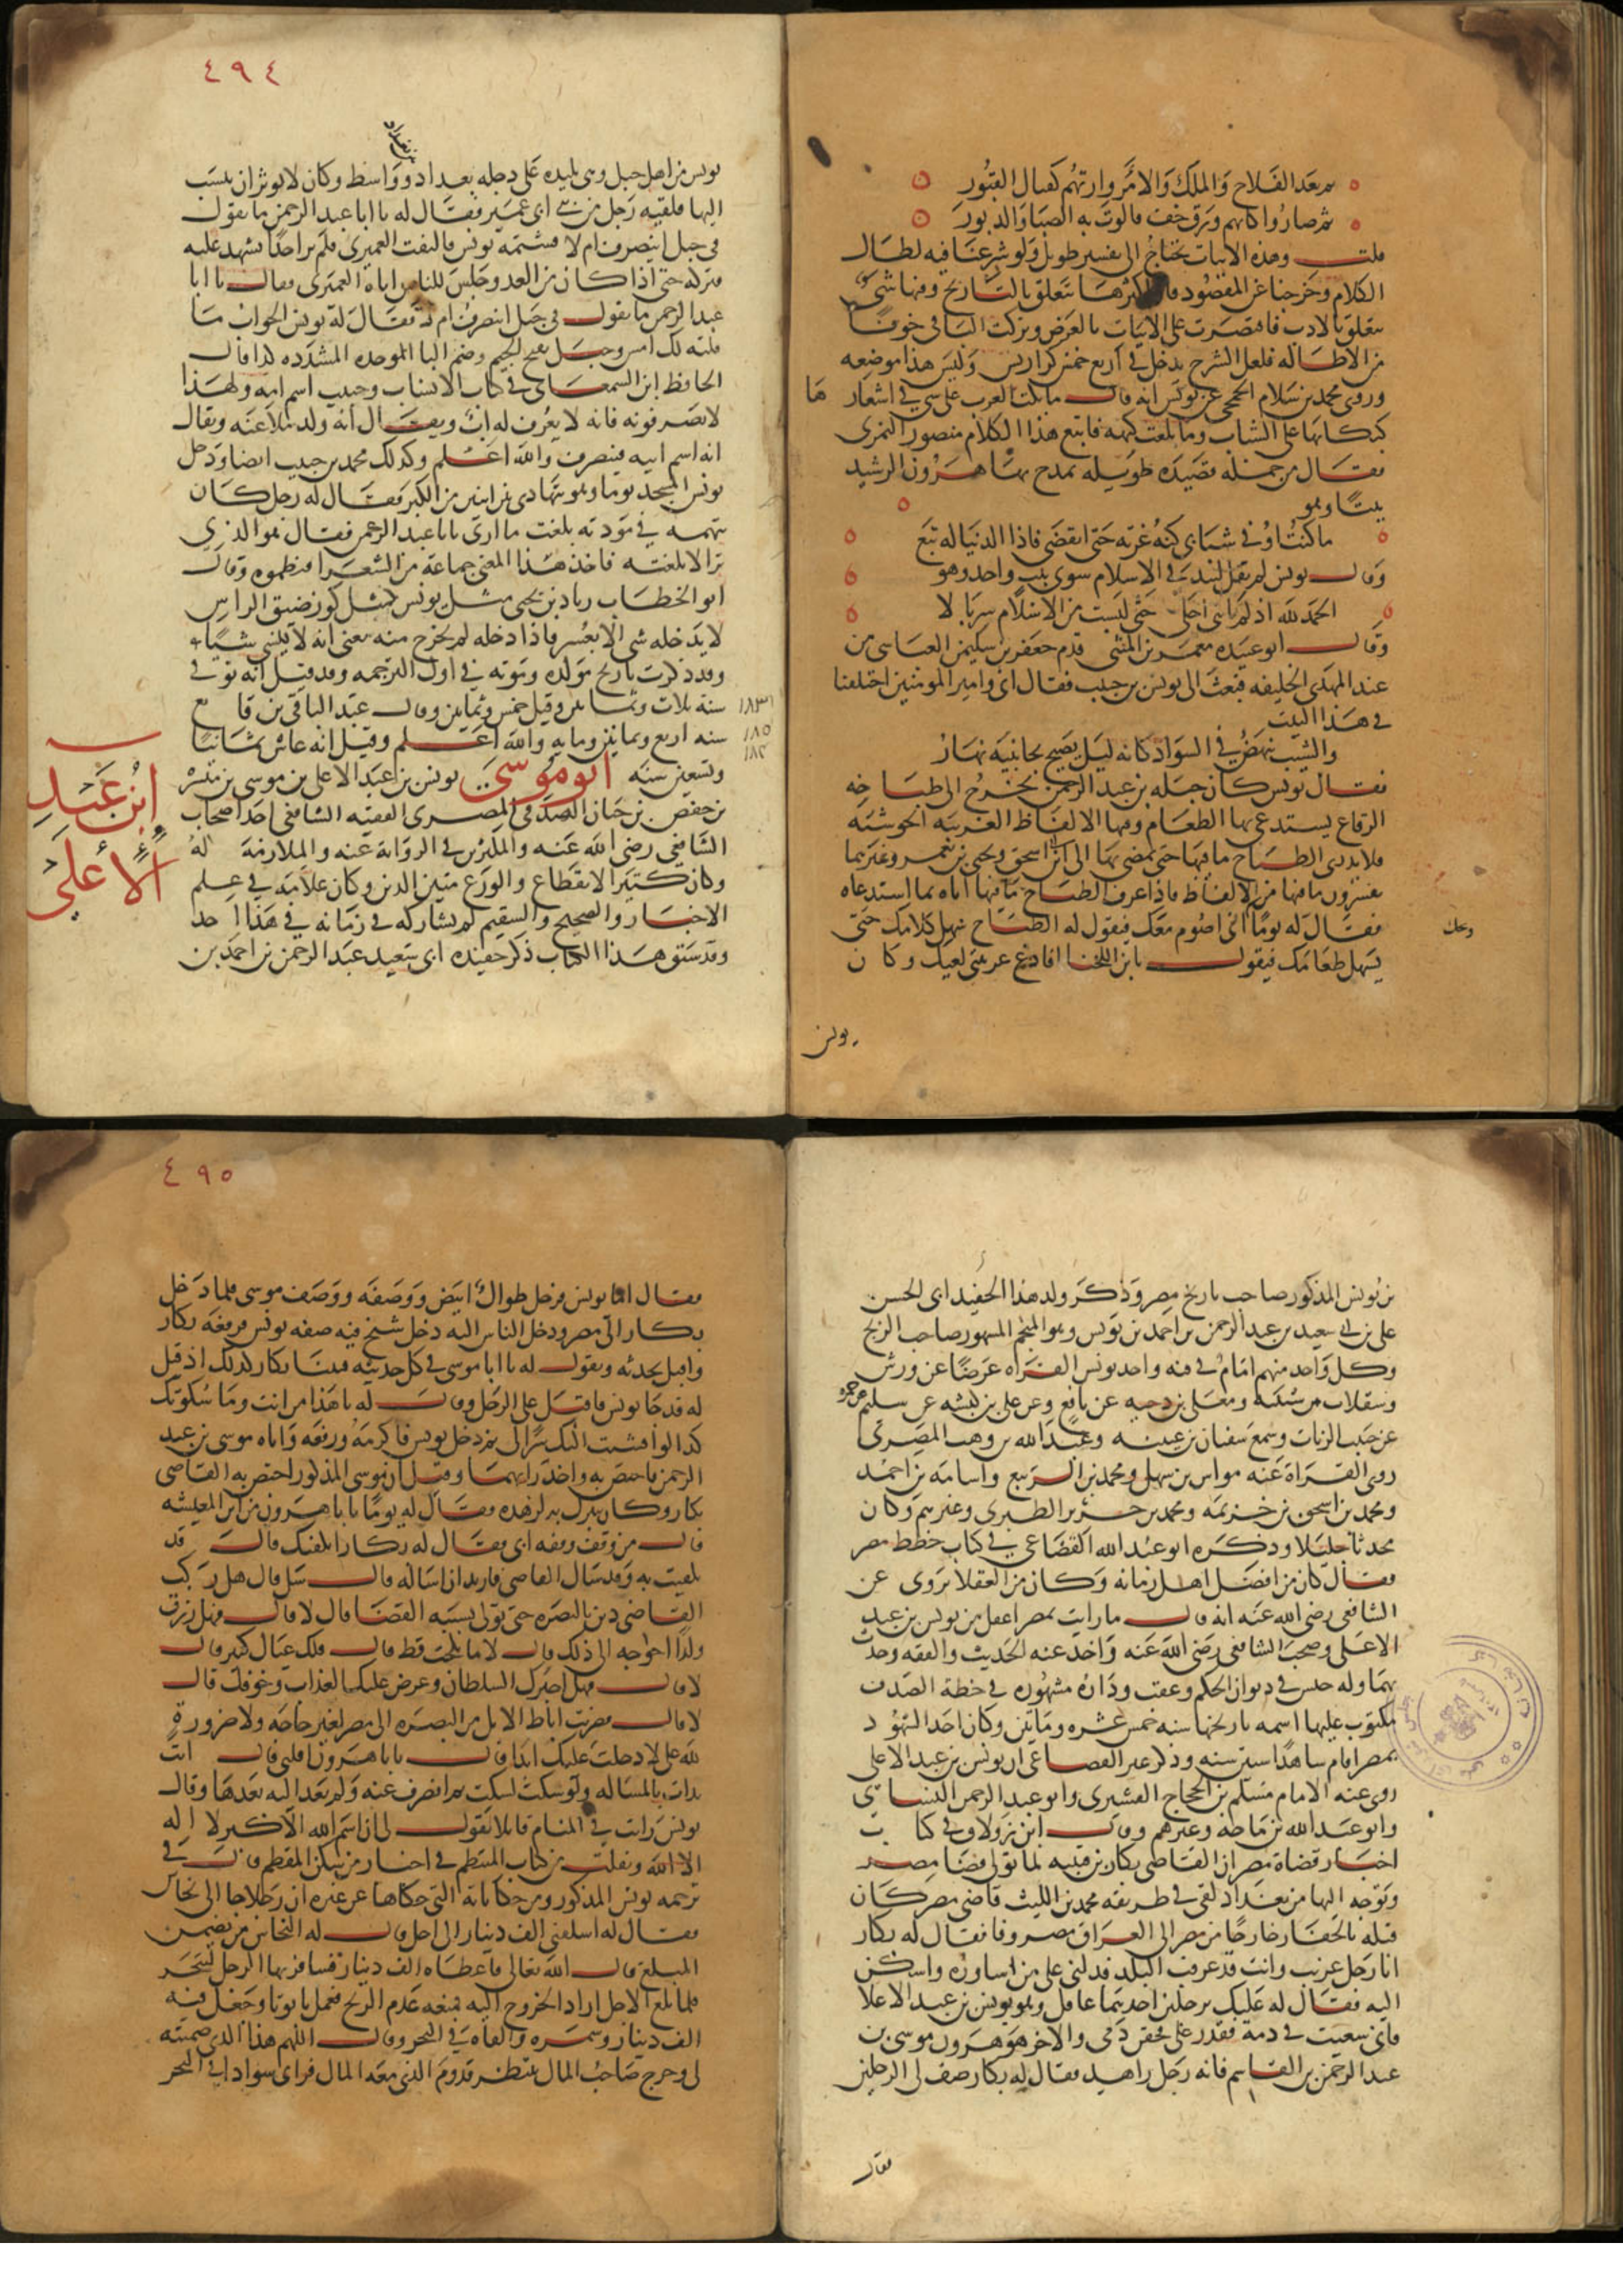 ثم بعد الفلاح والملك والامر وارتهم كفال القبور
ثم صاروا كانهم ورق خف فالوت به الصبا والدبور
قلت وهذه الابيات تحتاج الى تفسير طويل ولو شرعنا فيه لطال
الكلام وخرجنا عن المقصود فان اكثرها يتعلق بالتاريخ وفيها شي
يتعلق بالادب فاقتصرت على الابيات بالغرض وتركت الباقي خوفا
من الاطاله فلعل الشرح يدخل في اربع خمس كراريس وليس هذا موضعه
وروى محمد بن سلام الجمحي عن يونس انه قال ما بكت العرب على شي في اشعارها
كبكايها على الشباب وما بلغت كنهه فاتبع هذا الكلام منصور النمري
فقال من جملة قصيده طويله يمدح بها هرون الرشيد
بيتا وهو
ما كنت اوفي شبابي كنه غرته حتى انقضى فاذا الدنيا له تبع
وقال يونس لم يقل لبيد في الاسلام سوى بيت واحد وهو
الحمد لله اذ لم ياتني اجلي حتى لبست من الاسلام سربالا
وقال ابو عبيده معمر بن المثنى قدم جعفر بن سليمن العباسي من
عند المهدي الخليفه فبعث الى يونس بن حبيب فقال اني وامير المومنين اختلفنا
في هذا البيت
والشيب ينهض في السواد كانه ليل يصيح بجانبيه نهار
فقال يونس كان جبله بن عبد الرحمن يخرج الى طباخه
الرقاع يستدعي بها الطعام وفيها الالفاظ الغريبه الحوشيه
فلا يدري الطباخ ما فيها حتى يمضي بها الى ابن اسحق ويحيى بن يعمر وغيرهما
يفسرون ما فيها من الالفاظ فاذا عرف الطباخ ما فيها اتاه بما استدعاه
فقال له يوما اني اصوم معك فيقول له الطباخ سهل كلامك حتى
ويحك
يسهل طعامك فيقول يا ابن اللخنا افادع عربيتي لعيك وكان
يونس
٤٩٤
يونس من اهل جبل وهي بليده على دجله بين بغداد وواسط وكان لا يوثر ان ينسب
اليها فلقيه رجل من بني ابي عمير فقال له يا ابا عبد الرحمن ما تقول
في جبل اينصرف ام لا فشتمه يونس فالتفت العميري فلم ير احدا يشهد عليه
فتركه حتى اذا كان من الغد وجلس للناس اتاه العميري فقال يا ابا
عبد الرحمن ما تقول في جبل اينصرف ام لا فقال له يونس الجواب ما
قلته لك امس وجبل بفتح الجيم وضم البا الموحده المشدده كذا قال
الحافظ ابن السمعاني في كتاب الانساب وحبيب اسم امه ولهذا
لا يصرفونه فانه لا يعرف له اب ويقال انه ولد ملاعنه ويقال
انه اسم ابيه فينصرف والله اعلم وكذلك محمد بن حبيب ايضا ودخل
يونس المسجد يوما وهو يتهادى بين اثنين من الكبر فقال له رجل كان
يتهمه في مودته بلغت ما ارى يا ابا عبد الرحمن فقال هو الذي
ترى لا بلغته فاخذ هذا المعنى جماعة من الشعرا فنظموه وقال
ابو الخطاب زياد بن يحيى مثل يونس كمثل كوز ضيق الراس
لا يدخله شي الا بعسر فاذا دخله لم يخرج منه يعني انه لا ينسى شيا
وقد ذكرت تاريخ مولده وموته في اول الترجمه وقد قيل انه توفي
سنه ثلاث وثمانين وقيل خمس وثمانين وقال عبد الباقي بن قانع
١٨٣
سنه اربع وثمانين ومايه والله اعلم وقيل انه عاش ثمانيا
١٨٥
١٨٢
وتسعين سنه ابو موسى يونس بن عبد الاعلى بن موسى بن ميسره
ابن عبد
الأعلى
بن حفص بن حيان الصدفي المصري الفقيه الشافعي احد اصحاب
الشافعي رضي الله عنه والمكثرين في الروايه عنه والملازمة له
وكان كثير الانقطاع والورع متين الدين وكان علامة في علم
الاخبار والصحيح والسقيم لم يشاركه في زمانه في هذا احد
وقد سبق هذا الكتاب ذكر حفيده ابي سعيد عبد الرحمن بن احمد بن
بن يونس المذكور صاحب تاريخ مصر وذكر ولد هذا الحفيد ابي الحسن
علي بن ابي سعيد بن عبد الرحمن بن احمد بن يونس وهو المنجم المشهور صاحب الزيج
وكل واحد منهم امام في فنه واخذ يونس القراه عرضا عن ورش
وسقلاب بن شنينه ومعلى بن دحيه عن نافع وعن علي بن كبشه عن سليم عن حمزه
بن حبيب الزيات وسمع سفيان بن عيينه وعبد الله بن وهب المصري
روى القراة عنه مواس بن سهل ومحمد بن الربيع واسامه بن احمد
ومحمد بن اسحق بن خزيمة ومحمد بن جرير الطبري وغيرهم وكان
محدثا جليلا وذكره ابو عبد الله القضاعي في كتاب خطط مصر
فقال كان من افضل اهل زمانه وكان من العقلا يروى عن
الشافعي رضي الله عنه انه قال ما رايت بمصر اعقل من يونس بن عبد
الاعلى وصحب الشافعي رضي الله عنه واخذ عنه الحديث والفقه وحدث
بهما وله حبس في ديوان الحكم وعقب وداره مشهوره في خطة الصدف
مكتوب عليها اسمه تاريخها سنه خمس عشره ومايتين وكان احد الشهود
بمصر اقام شاهدا ستين سنه وذكر غير القضاعي ان يونس بن عبد الاعلى
روى عنه الامام مسلم بن الحجاج القشيري وابو عبد الرحمن النسائي
وابو عبد الله بن ماجه وغيرهم وقال ابن زولاق في كتاب
اخبار قضاة مصر ان القاضي بكار بن قتيبه لما تولى قضا مصر
وتوجه اليها من بغداد لقي في طريقه محمد بن الليث قاضي مصر كان
قبله بالجفار خارجا من مصر الى العراق مصروفا فقال له بكار
انا رجل غريب وانت قد عرفت البلد فدلني على من اشاوره واسكن
اليه فقال له عليك برجلين احدهما عاقل وهو يونس بن عبد الاعلا
فاني سعيت في دمه فقدر علي فحقن دمي والاخر هو هرون موسى بن
عبد الرحمن بن القاسم فانه رجل زاهد فقال له بكار صف لي الرجلين
فقال
٤٩٥
فقال اما يونس فرجل طوال ابيض ووصفه ووصف موسى فلما دخل
بكار الى مصر ودخل الناس اليه دخل شيخ فيه صفه يونس فرفعه بكار
واقبل يحدثه ويقول له يا ابا موسى في كل حديثه فبينا بكار كذلك اذ قيل
له قد جا يونس فاقبل على الرجل وقال له يا هذا من انت وما سكوتك
كذا لو افشيت اليك سرا لي ثم دخل يونس فاكرمه ورفعه واتاه موسى بن عبد
الرحمن فاختص به واخذ رايهما وقيل ان موسى المذكور اختص به القاضي
بكار وكان يتبرك به لزهده فقال له يوما يا با هرون من اين المعيشه
قال من وقف وقفه ابي فقال له بكار ايكفيك قال قد
تكفيت به وقد سال القاضي فاريد ان اساله قال سل قال هل ركب
القاضي دين بالبصره حتى تولى بسببه القضا قال لا قال فهل رزق
ولدا احوجه الى ذلك قال لا ما نكحت قط قال فلك عيال كثير قال
لا قال فهل اجبرك السلطان وعرض عليك العذاب وخوفك قال
لا قال فضربت اباط الابل من البصره الى مصر لغير حاجه ولا ضرورة
لله علي لا دخلت عليك ابدا قال يا با هرون اقلني قال انت
بدات بالمساله ولو سكت لسكت ثم انصرف عنه ولم يعد اليه بعدها وقال
يونس رايت في المنام قايلا يقول لي ان اسم الله الاكبر لا اله
الا الله ونقلت من كتاب المنتظم في اخبار من سكن المقطم قال في
ترجمه يونس المذكور ومن حكاياته التي حكاها عن غيره ان رجلا جا الى نخاس
فقال له اسلفني الف دينار الى اجل قال له النخاس من يضمن
المبلغ قال الله تعالى فاعطاه الف دينار فسافر بها الرجل يتجر
فلما بلغ الاجل اراد الخروج اليه فمنعه عدم الريح فعمل تابوتا وجعل فيه
الف دينار وسمره والقاه في البحر وقال اللهم هذا الذي ضمنته
لي وخرج صاحب المال ينتظر قدوم الذي معه المال فراى سوادا في البحر